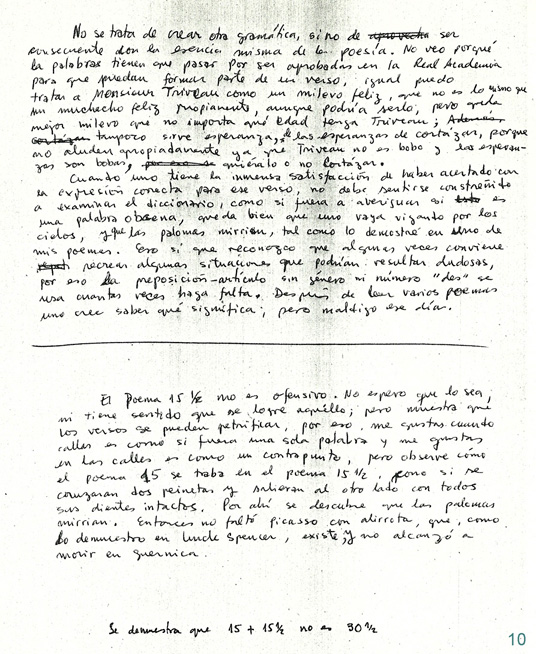 No se trata de crear otra gramática, sino de ser
consecuente con la esencia misma de la poesía. No veo porqué
las palabras tienen que pasar por ser aprobadas en la Real Academia
para que puedan formar parte de un verso; igual puedo
tratar a Monsieur Triveau como un milevo feliz, que no es lo mismo que
un muchacho feliz propiamente, aunque podría serlo, pero queda
mejor milevo que no importa qué edad tenga Triveau;
tampoco sirve esperanza, de las esperanzas de cortázar, porque
no aluden apropiadamente ya que Triveau no es bobo y las esperan-
zas son bobas, quiéralo o no Cortázar.
Cuando uno tiene la inmensa satisfacción de haber acertado con
la expresión correcta para ese verso, no debe sentirse constreñido
a examinar el diccionario, como si fuera a averiguar si es
una palabra obscena, queda bien que uno vaya vigando por los
cielos, y que las palomas mirrien, tal como lo demostré en uno de
mis poemas. Eso sí que reconozco que algunas veces conviene
recrear algunas situaciones que podrían resultar dudosas,
por eso la preposición-artículo sin género ni número "des" se
usa cuantas veces haga falta. Después de leer varios poemas
uno cree saber qué significa; pero maldigo ese día.
El Poema 15 ½ no es ofensivo. No espero que lo sea,
ni tiene sentido que se logre aquéllo; pero muestra que
los versos se pueden petrificar, por eso me gustas cuando
calles es como si fuera una sola palabra y me gustas
en las calles es como un contrapunto, pero observe cómo
el poema 15 se traba en el poema 15 ½, como si se
cruzaran dos peinetas y salieran al otro lado con todos
sus dientes intactos. Por ahí se descubre que las palomas
mirrian. Entonces no faltó picasso con alirrota, que, como
lo demuestro en Uncle Spencer, existe, y no alcanzó a
morir en guernica.
Se demuestra que 15 + 15½ no es 30 ½
10